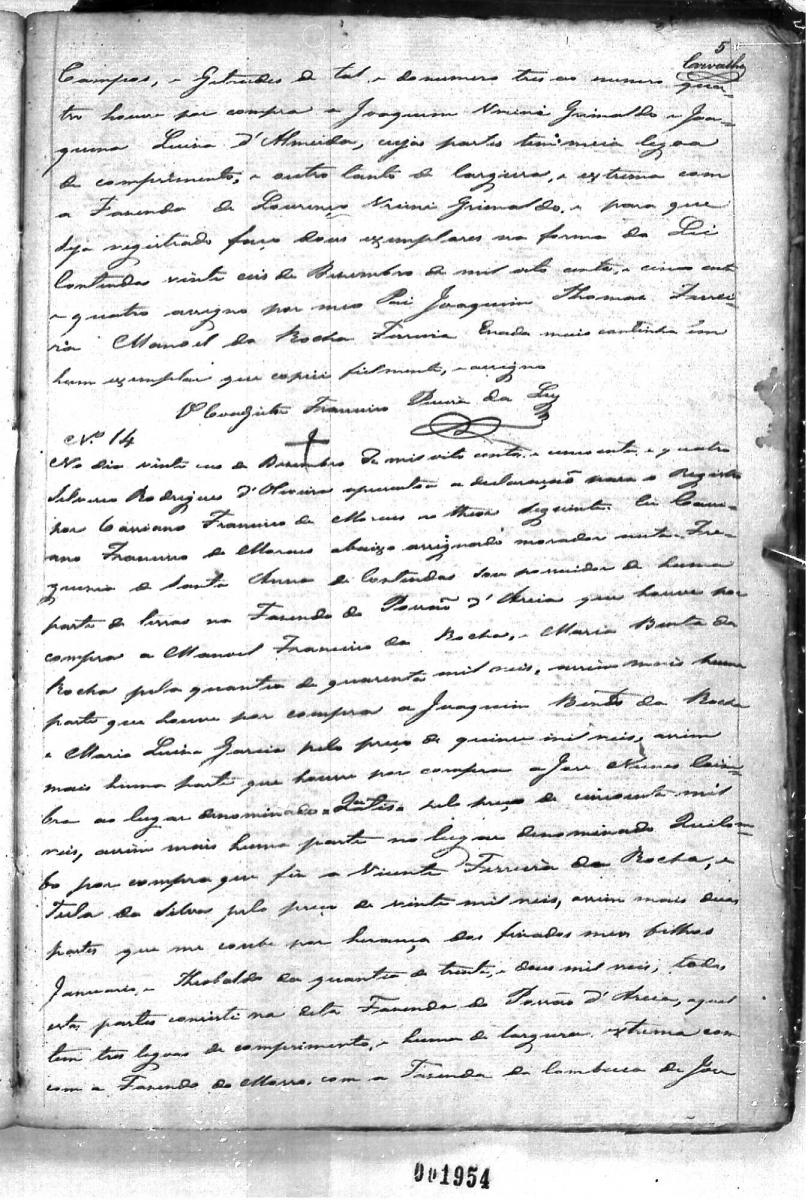 5
Carvalho
Campos, e Getrudes de tal, e do numero tres ao numero qua-
tro houve por compra a Joaquim Grinaldo e Joa-
quina Luisa d'Almeida, cujas partes tem meia legoa
de comprimento, e outro tanto de largura, e extrema com
a Fazenda de Lourenço Grinaldo, e para que
seja registrado faço dous exemplares na forma da Lei
Contendas vinte seis de Dezembro de mil oito centos, e cincoenta
e quatro assigno por meo Pai Joaquim Thomas Ferrei-
ra Manoel da Rocha Ferreira Enada mais continha em
hum exemplar que copiei fielmente, e assigno
O Coadjutor Francisco Pereira da Luz
Nº 14
No dia vinte seis de Dezembro de mil oito centos, e cincoenta, e quatro
Silverio Rodrigues d'Oliveira apresentou a declaração para o Registro
por Cassiano Francisco de Moraes do theor seguinte. Eu Cassi-
ano Francisco de Moraes abaixo assignado morador nesta Fre-
guesia de Santa Anna de Contendas sou possuidor de huma
parte de terras na Fazenda do Porrão d'Areia que houve por
compra a Manoel Francisco da Rocha, e Maria Benta da
Rocha pela quantia de quarenta mil reis, assim mais huma
parte que houve por compra a Joaquim Bento da Rocha
e Maria Luisa Garcia pelo preço de quinze mil reis, assim
mais huma parte que houve por compra a Jose Nunes Coim-
bra ao lugar denominado pelo preço de cincoenta mil
reis, assim mais huma parte no lugar denominado Quilom-
bo por compra que fiz a Vicente Ferreira da Rocha, e
Tecla da Silva pelo preço de vinte mil reis, assim mais duas
partes que me coube por herança dos finados meus filhos
Januario, e Theobaldo da quantia de trinta, e dous mil reis, todas
estas partes consiste na dita Fazenda do Porrão d'Areia, a qual
tem tres legoas de comprimento, e huma de largura extrema com
com a Fazenda do Morro, com a Fazenda da Cambuca de Jose
001954